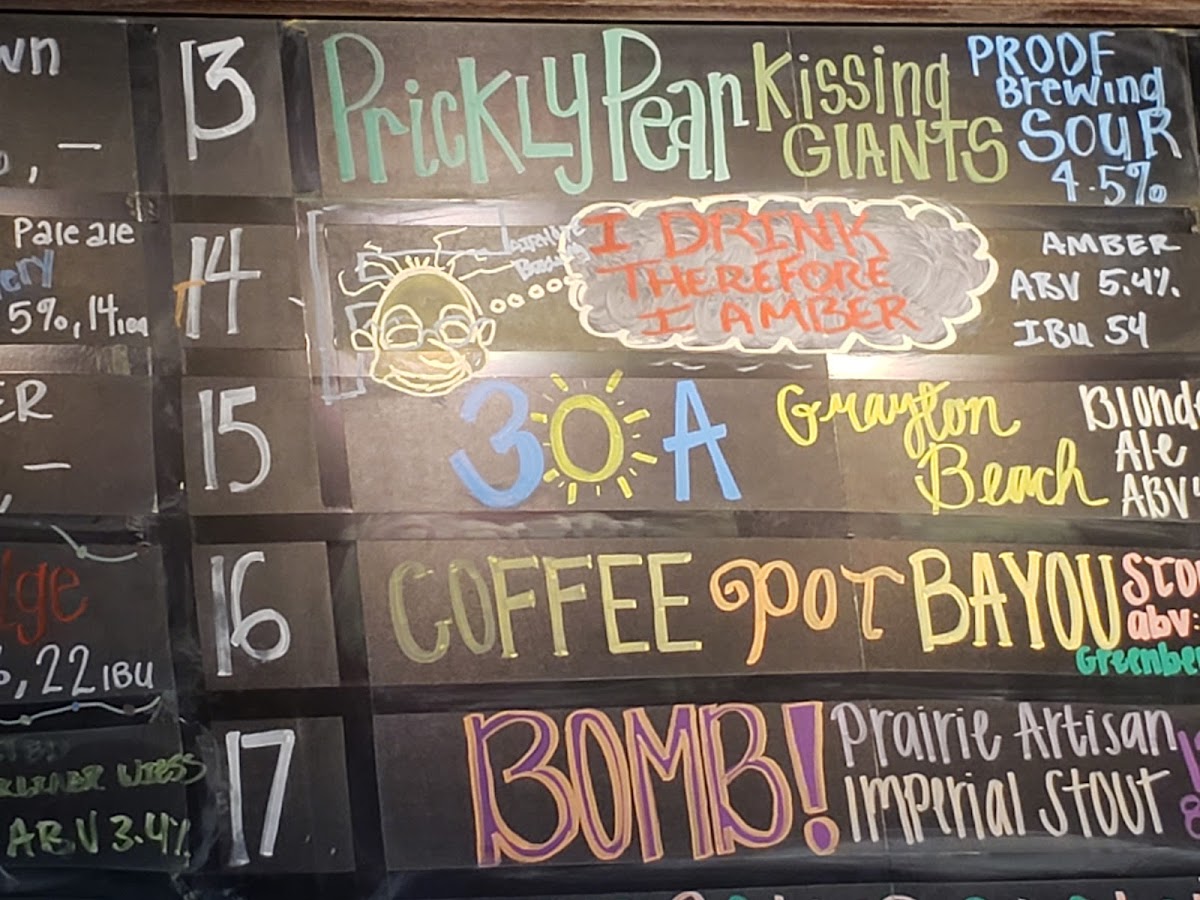 wn
13
Prickly Pear
Kissing
GIANTS
PROOF
Brewing
SOUR
4.5%
Pale ale
ery
5%, 14 IBU
14
I DRINK
THEREFORE
I AMBER
AMBER
ABV 5.4%
IBU 54
ER
15
30A
Grayton
Beach
Blond
Ale
ABV
lge
%, 22 IBU
16
COFFEE POT BAYOU
STO
abv:
Greenbe
ABV 3.4%
17
BOMB!
Prairie Artisan
Imperial Stout